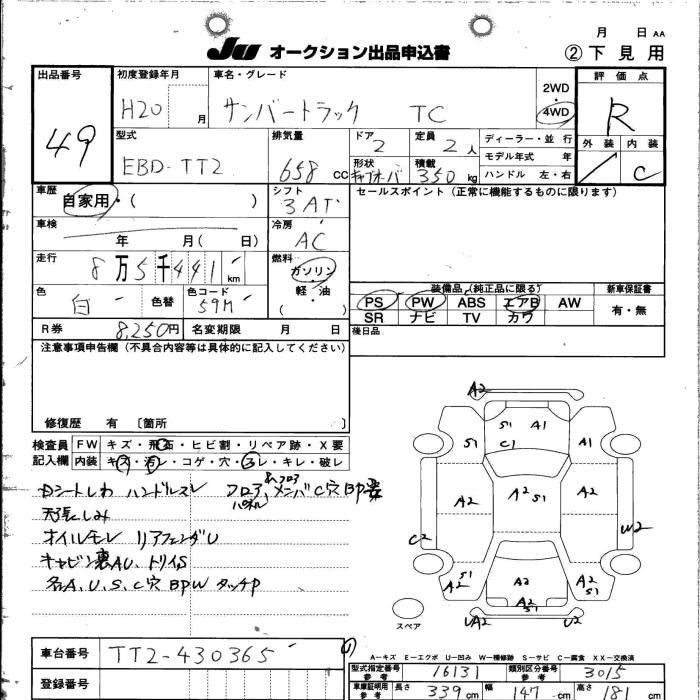 月 日 AA
JU オークション出品申込書
② 下見用
出品番号 49
初度登録年月 H20 月
車名・グレード サンバートラック TC
2WD・4WD
評価点 R
外装 内装 C
型式 EBD-TT2
排気量 658 cc
ドア 2
定員 2 人
形状 キャブオーバ
積載 350 kg
ディーラー・並行
モデル年式 年
ハンドル 左・右
車歴 自家用・( )
シフト 3AT
セールスポイント (正常に機能するものに限ります)
車検 年 月( 日)
冷房 AC
走行 8万5千441 km
燃料 ガソリン・軽油 ( )
色 白
色替
色コード 59M
装備品(純正品に限る)
新車保証書
PS PW ABS エアB AW
有・無
SR ナビ TV カワ
R券 8,250円
名変期限 月 日
後日品
注意事項申告欄 (不具合内容等は具体的に記入してください)
修復歴 有 〔箇所 〕
検査員記入欄
FW キズ・飛石・ヒビ割・リペア跡・X要
内装 キズ・汚レ・コゲ・穴・スレ・キレ・破レ
Dシートしわ ハンドルスレ フロアパネル、メンバC穴BP要
天張しみ
オイルモレ リアフェンダU
キャビン裏AU、トリイS
各A、U、S、C穴 BPW タッチP
A2
S1 A1
S1 C1 A1
A2 A2 S1 A2
C2 W2
A2 S1 A2 A2 S1
A2 S1
UA2 U2
スペア
A-キズ E-エクボ U-凹み W-補修跡 S-サビ C-腐食 XX-交換済
車台番号 TT2-430365
登録番号
型式指定番号 参考 16131
類別区分番号 参考 3015
車庫証明用 参考 長さ 339 cm 幅 147 cm 高さ 181 cm